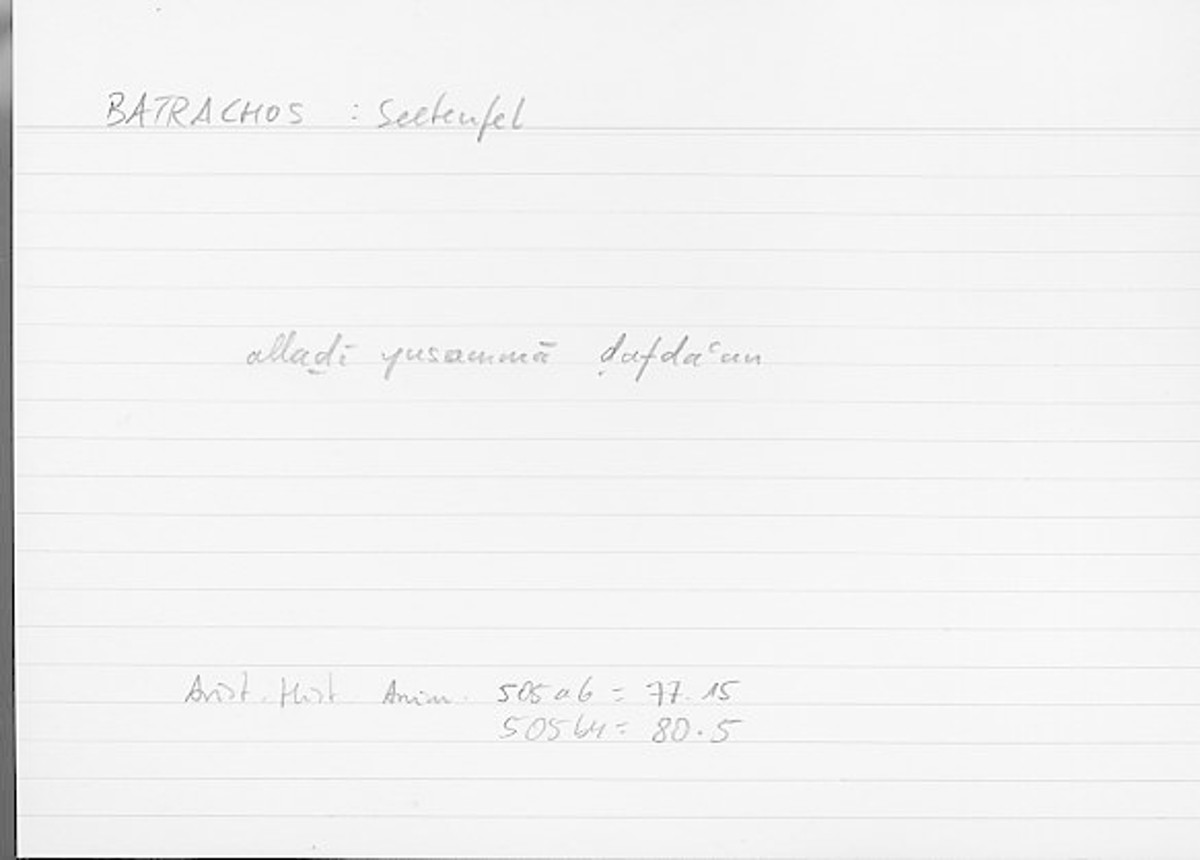 BATRACHOS : Seeteufel
allaḏī yusammā ḍafdaʿun
Arist. Hist. Anim. 505a6 = 77.15
505b4 = 80.5